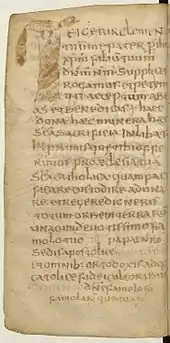 Teigeturclemen
tissime pater p
xpm filium tuum
dnm nm supplices
rogamus et petem
uti acceptum habe
as et benedicas haec
dona haec munera haec
sca sacrificia inlibata
inprimis que tibi offe
rimus pro eclesia tua
sca catolica quam paci
ficare custodire aduna
re et regere digneris
toto orbem terraru
una cum deuotissimo fa
molo tuo papa nro
sedis apostolice
et omnib: ortodoxis adq
catolice fidei cultorib
memento dne famolor
famolar